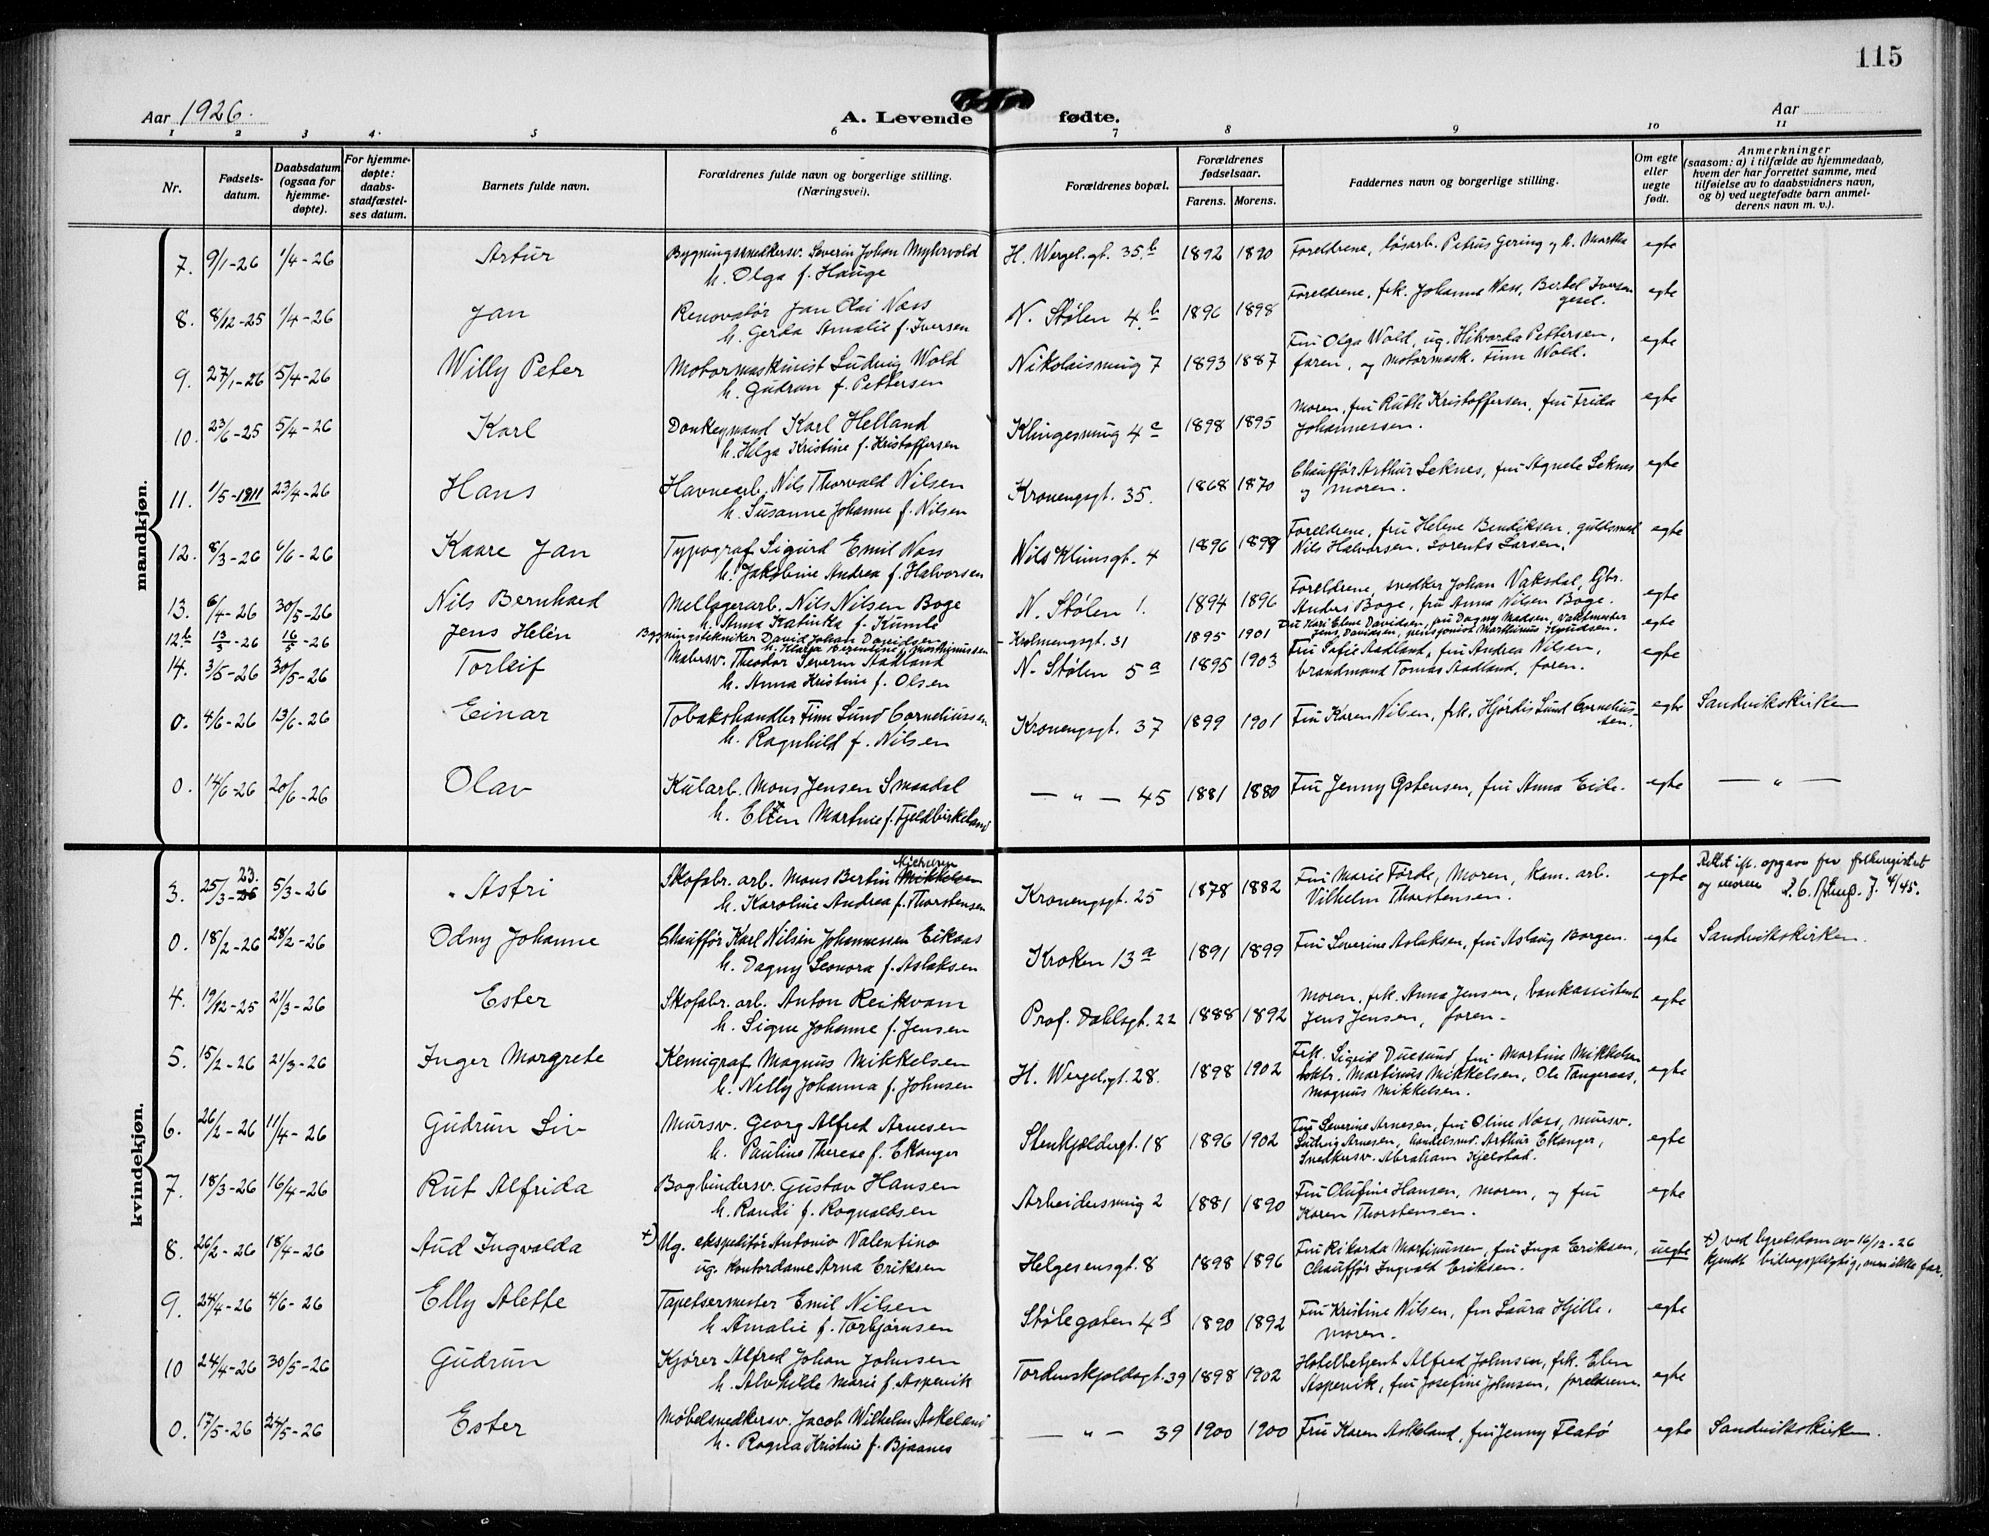 115
Aar 1926.
A. Levende fødte.
Aar
1 2 3 4. 5 6 7 8 9 10 11
Nr.
Fødsels-
datum.
Daabsdatum
(ogsaa for
hjemme-
døpte).
For hjemme-
døpte:
daabs-
stadfæstel-
ses datum.
Barnets fulde navn.
Forældrenes fulde navn og borgerlige stilling.
(Næringsvei).
Forældrenes bopæl.
Forældrenes
fødselsaar.
Farens. Morens.
Faddernes navn og borgerlige stilling.
Om egte
eller
uegte
født.
Anmerkninger
(saasom: a) i tilfælde av hjemmedaab,
hvem der har forrettet samme, med
tilføielse av to daabsvidners navn,
og b) ved uegtefødte barn anmel-
derens navn m. v.).
mandkjøn.
7. 9/1-26 1/4-26 Artur Bygningssnedkersv. Severin Johan Myhrvold H. Wergel.gt. 35 b 1892 1890 Foreldrene, løsarb. Petrus Gering og h. Martha egte
h. Olga f. Hauge
8. 8/12-25 1/4-26 Jan Renovatør Jan Olai Næss N. Stølen 4 b 1896 1898 Foreldrene, frk. Johanne Næss, Bertel Iversen egte
h. Gerda Amalie f. Iversen gesel.
9. 27/1-26 5/4-26 Willy Peter Motormaskinist Ludvig Wold Nikolaismug 7 1893 1887 Fru Olga Wold, ug. Hilvarda Pettersen, egte
h. Gudrun f. Pettersen faren, og motormask. Finn Wold.
10. 23/6-25 5/4-26 Karl Donkeymand Karl Helland Klingesmug 4 c 1898 1895 Moren, fru Ruth Kristoffersen, fru Frida egte
h. Helga Kristine f. Kristoffersen Johannessen.
11. 1/5-1911 23/4-26 Hans Havnearb. Nils Thorvald Nilsen Kronengsgt. 35. 1868 1870 Chauffør Arthur Seknes, fru Agnete Seknes egte
h. Susanne Johanne f. Nilsen og moren.
12. 8/3-26 6/6-26 Kaare Jan Typograf Sigurd Emil Næss Nils Klimsgt. 4 1896 1899 Foreldrene, fru Helene Bendiksen, guldsmed egte
h. Jakobine Andrea f. Halvorsen Nils Halvorsen, Lorents Larsen.
13. 6/4-26 30/5-26 Nils Bernhard Mellagerarb. Nils Nilsen Boge N. Stølen 1. 1894 1896 Foreldrene, snedker Johan Vaksdal, Gbr. egte
h. Anna Katinka f. Kumle Anders Boge, fru Anna Nilsen Boge.
12b 13/3-26 16/5-26 Jens Helin Bygningstekniker David Johan Davidsen Krohnengsgt. 31 1895 1901 Fru Kari Elene Davidsen, fru Dagny Madsen, Vaktmester egte
h. Klara Berentine f. Marthinussen Jens Davidsen, pensjonist Marthinus Knudsen.
14. 3/5-26 30/5-26 Torleif Malersv. Theodor Severin Aadland N. Stølen 5 a 1895 1903 Fru Sofie Aadland, fru Andrea Nilsen, egte
h. Anna Kristine f. Olsen brandmand Tomas Aadland, faren.
0. 4/6-26 13/6-26 Einar Tobakshandler Finn Lund Corneliussen Kronengsgt. 37 1899 1901 Fru Karen Nilsen, frk. Hjørdis Lund Cornelius- egte Sandvikskirken
h. Ragnhild f. Nilsen sen.
0. 14/6-26 20/6-26 Olav Kularb. Mons Jensen Smaadal — " — 45 1881 1880 Fru Jenny Gstensen, fru Anna Eide. egte — " —
h. Ellen Martine f. Fjeldbirkeland
kvindekjøn.
3. 25/3-25 23. 5/3-26 Astri Skofabr. arb. Mons Bertin Mikkelsen Kronengsgt. 25 1878 1882 Fru Marie Förde, moren, kom. arb. egte Rettet ifl. opgave fra folkeregistret
h. Karoline Andrea f. Thorstensen Vilhelm Thorstensen. og moren 4/45.
0. 18/2-26 28/2-26 Odny Johanne Chauffør Karl Nilsen Johannessen Eikaas Kroken 13 a 1891 1899 Fru Severine Aslaksen, fru Aslaug Borgen. egte Sandvikskirken.
h. Dagny Leonora f. Aslaksen
4. 19/12-25 21/3-26 Ester Skofabr. arb. Anton Reikvam Prof. Dahlsgt. 22 1888 1892 Moren, frk. Anna Jensen, bankassistent egte
h. Signe Johanne f. Jensen Jens Jensen, faren.
5. 15/2-26 21/3-26 Inger Margrete Kemigraf Magnus Mikkelsen H. Wergel.gt. 28. 1898 1902 Frk. Sigrid Duesund, fru Martine Mikkelsen egte
h. Nelly Johanna f. Johnsen boktr. Martinus Mikkelsen, Ole Tangeraas,
Magnus Mikkelsen.
6. 26/2-26 11/4-26 Gudrun Liv Mursv. Georg Alfred Arnesen Stenkjeldergt. 18 1896 1902 Fru Severine Arnesen, fru Oline Næss, mursv. egte
h. Pauline Therese f. Ekanger Ludvig Arnesen, handelsmd. Arthur Ekanger,
Snedkersv. Abraham Kjelstad.
7. 18/3-26 16/4-26 Rut Alfrida Bogbindersv. Gustav Hansen Arbeidersmug 2 1881 1890 Fru Olufine Hansen, moren, og fru egte
h. Randi f. Rognaldsen Karen Thorstensen.
8. 26/2-26 18/4-26 Aud Ingvalda +) Ug. ekspeditør Antonio Valentino Helgesensgt. 8 1898 1896 Fru Rikarda Martinussen, fru Inga Eriksen, uegte +) ved byretsdom av 16/12-26
ug. kontordame Arna Eriksen Chauffør Ingvald Eriksen. kjendt bidragspligtig, men ikke far.
9. 24/4-26 4/6-26 Elly Alette Tapetsermester Emil Nilsen Stølegaten 4 d 1890 1892 Fru Kristine Nilsen, fru Laura Hjelle, egte
h. Amalie f. Torbjørnsen moren.
10 24/4-26 30/5-26 Gudrun Kjører Alfred Johan Johnsen Tordenskjoldsgt. 39 1898 1902 Hotelbetjent Alfred Johnsen, frk. Elen egte
h. Alvhilde Marie f. Aspevik Aspevik, fru Josefine Johnsen, foreldrene.
0. 17/5-26 24/5-26 Ester Møbelsnedkersv. Jacob Wilhelm Askeland — " — 39 1900 1900 Fru Karen Askeland, fru Jenny Flatø egte Sandvikskirken.
h. Ragna Kristine f. Bjaanes